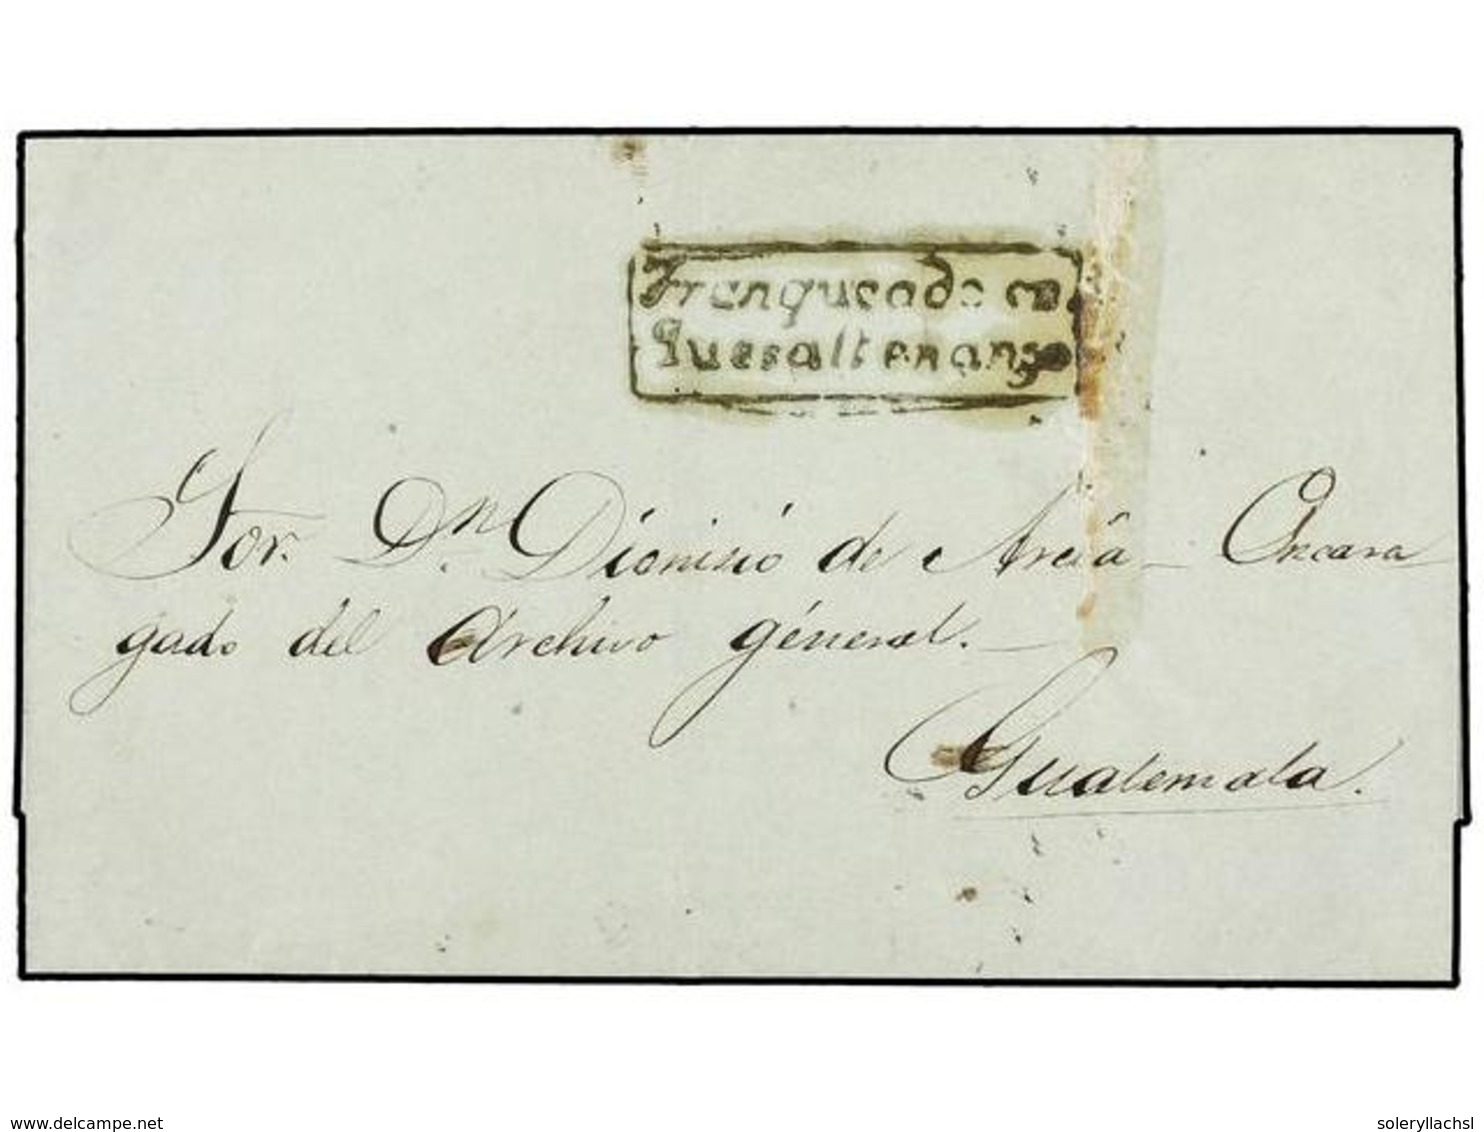 Franqueado en
Quesaltenango
Sor. Dn. Dionisio de Arcia - Encara
gado del Archivo géneral. -
Guatemala.
delcampe.net
soleryllachsl